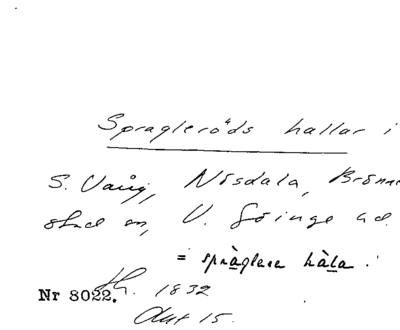 Spragleröds hallar i
S. Vång, Nösdala, Brönne
stad sn, V. Göinge hd.
= spràglara hàla.
Nr 8022. 1832
Okt 15.